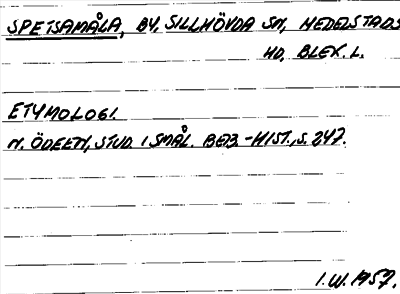 SPETSAMÅLA, BY, SILLHÖVDA SN, MEDELSTADS
HD, BLEK. L.
ETYMOLOGI.
N. ÖDEEN, STUD. I SMÅL. BEB.-HIST., S. 247.
I.W. 1957.